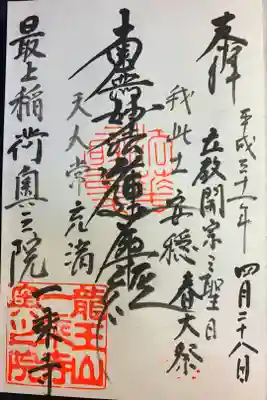 奉拝
平成三十一年 四月二十八日
立教開宗之聖日
春大祭
我此土安穏
南無妙法蓮華経
天人常充満
最上稲荷奥之院 一乗寺
龍王山
一乗寺
奥之院